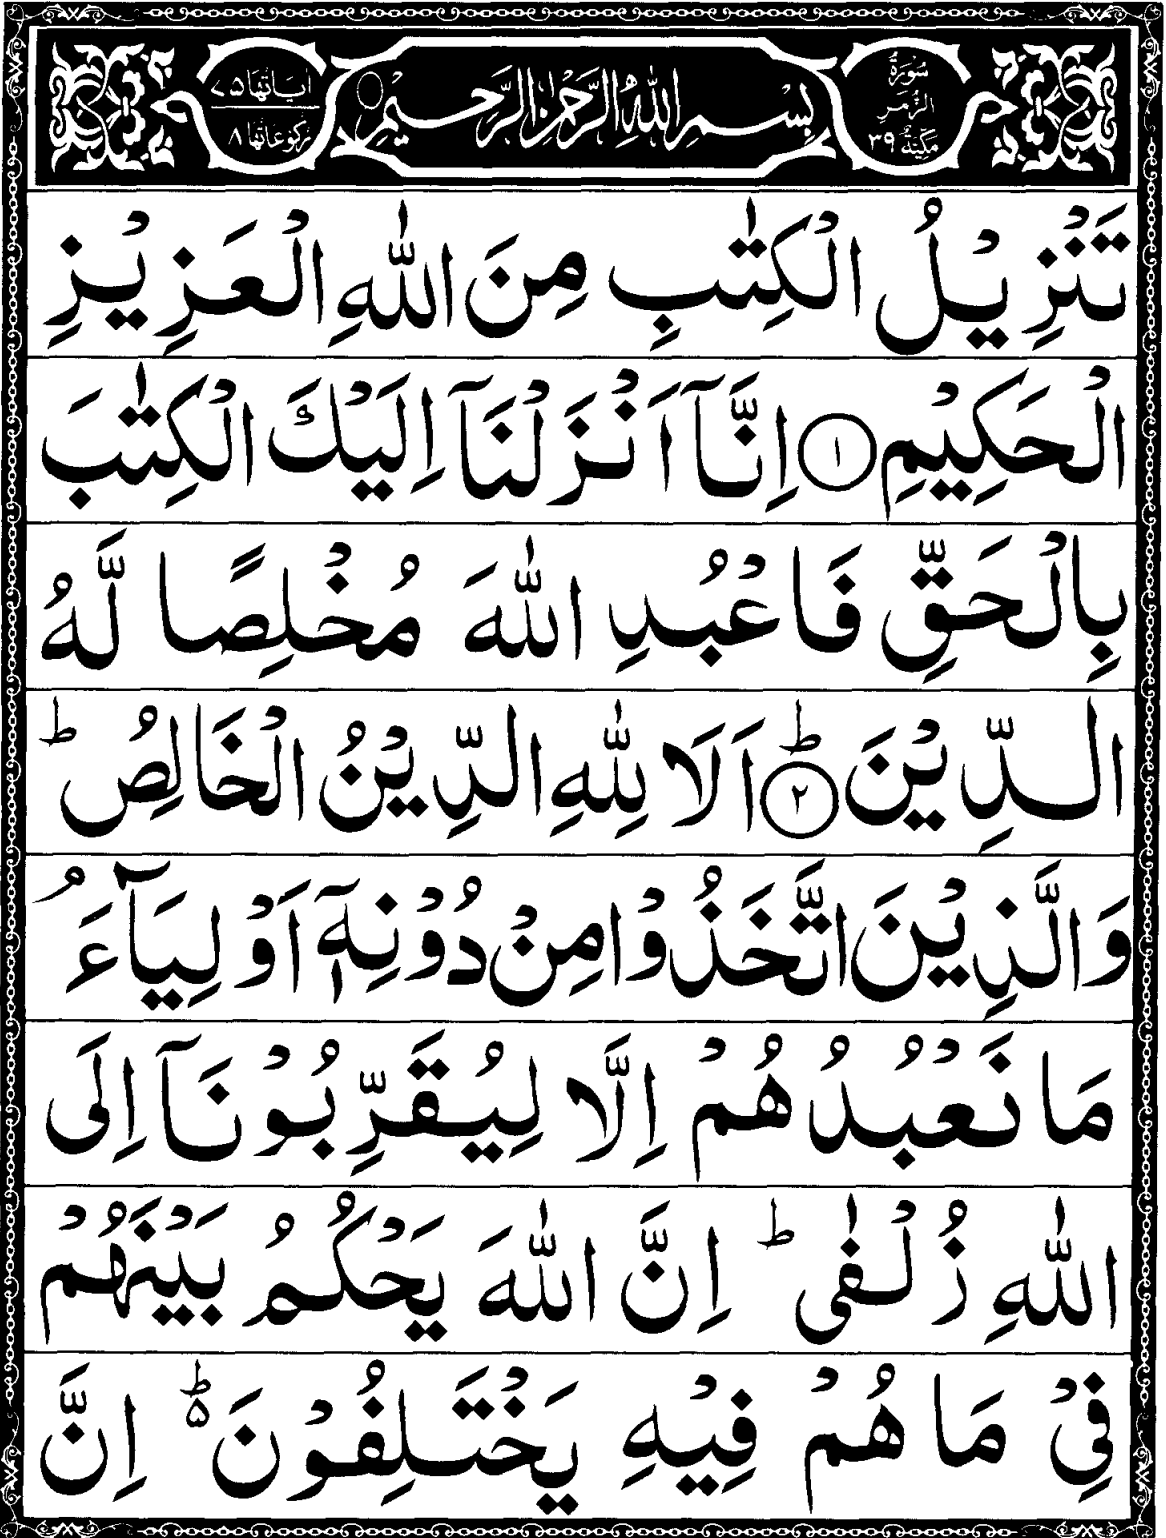 سُوْرَةُ الزُّمَرِ مَكِّيَّةٌ ٣٩
بِسْمِ اللّٰهِ الرَّحْمٰنِ الرَّحِيْمِ
اٰيَاتُهَا ٧٥
رُكُوْعَاتُهَا ٨
تَنْزِيْلُ الْكِتٰبِ مِنَ اللّٰهِ الْعَزِيْزِ
الْحَكِيْمِ ١ اِنَّآ اَنْزَلْنَآ اِلَيْكَ الْكِتٰبَ
بِالْحَقِّ فَاعْبُدِ اللّٰهَ مُخْلِصًا لَّهُ
الدِّيْنَ ؕ ٢ اَلَا لِلّٰهِ الدِّيْنُ الْخَالِصُ ؕ
وَالَّذِيْنَ اتَّخَذُوْا مِنْ دُوْنِهٖٓ اَوْلِيَآءَ ۘ
مَا نَعْبُدُهُمْ اِلَّا لِيُقَرِّبُوْنَآ اِلَى
اللّٰهِ زُلْفٰى ؕ اِنَّ اللّٰهَ يَحْكُمُ بَيْنَهُمْ
فِيْ مَا هُمْ فِيْهِ يَخْتَلِفُوْنَ ؕ۵ اِنَّ